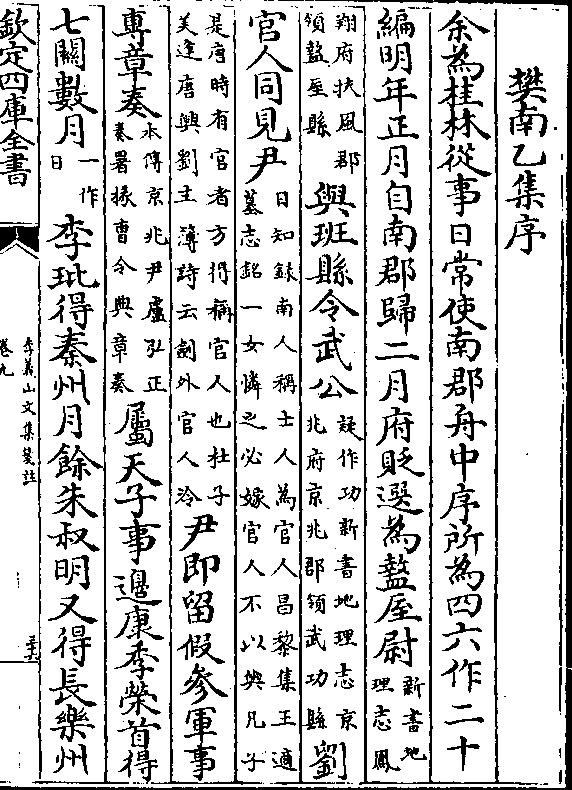 樊南乙集序
余為桂林從事日常使南郡舟中序所為四六作二十
編明年正月自南郡歸二月府貶選為盩厔尉新書地理志鳳
翔府扶風郡領盩厔縣與班縣令武公疑作功新書地理志京兆府京兆郡領武功縣劉
官人同見尹日知錄南人稱士人為官人昌黎集王適墓志銘一女憐之必嫁官人不以與凡子
是唐時有官者方得稱官人也杜子美逢唐興劉主簿詩云劍外官人冷尹即留假參軍事
專章奏本傳京兆尹盧弘正奏署掾曹令典章奏屬天子事邊康季榮首得
七關數月一作日李玭得秦州月餘朱叔明又得長樂州
欽定四庫全書
李義山文集箋註
卷九